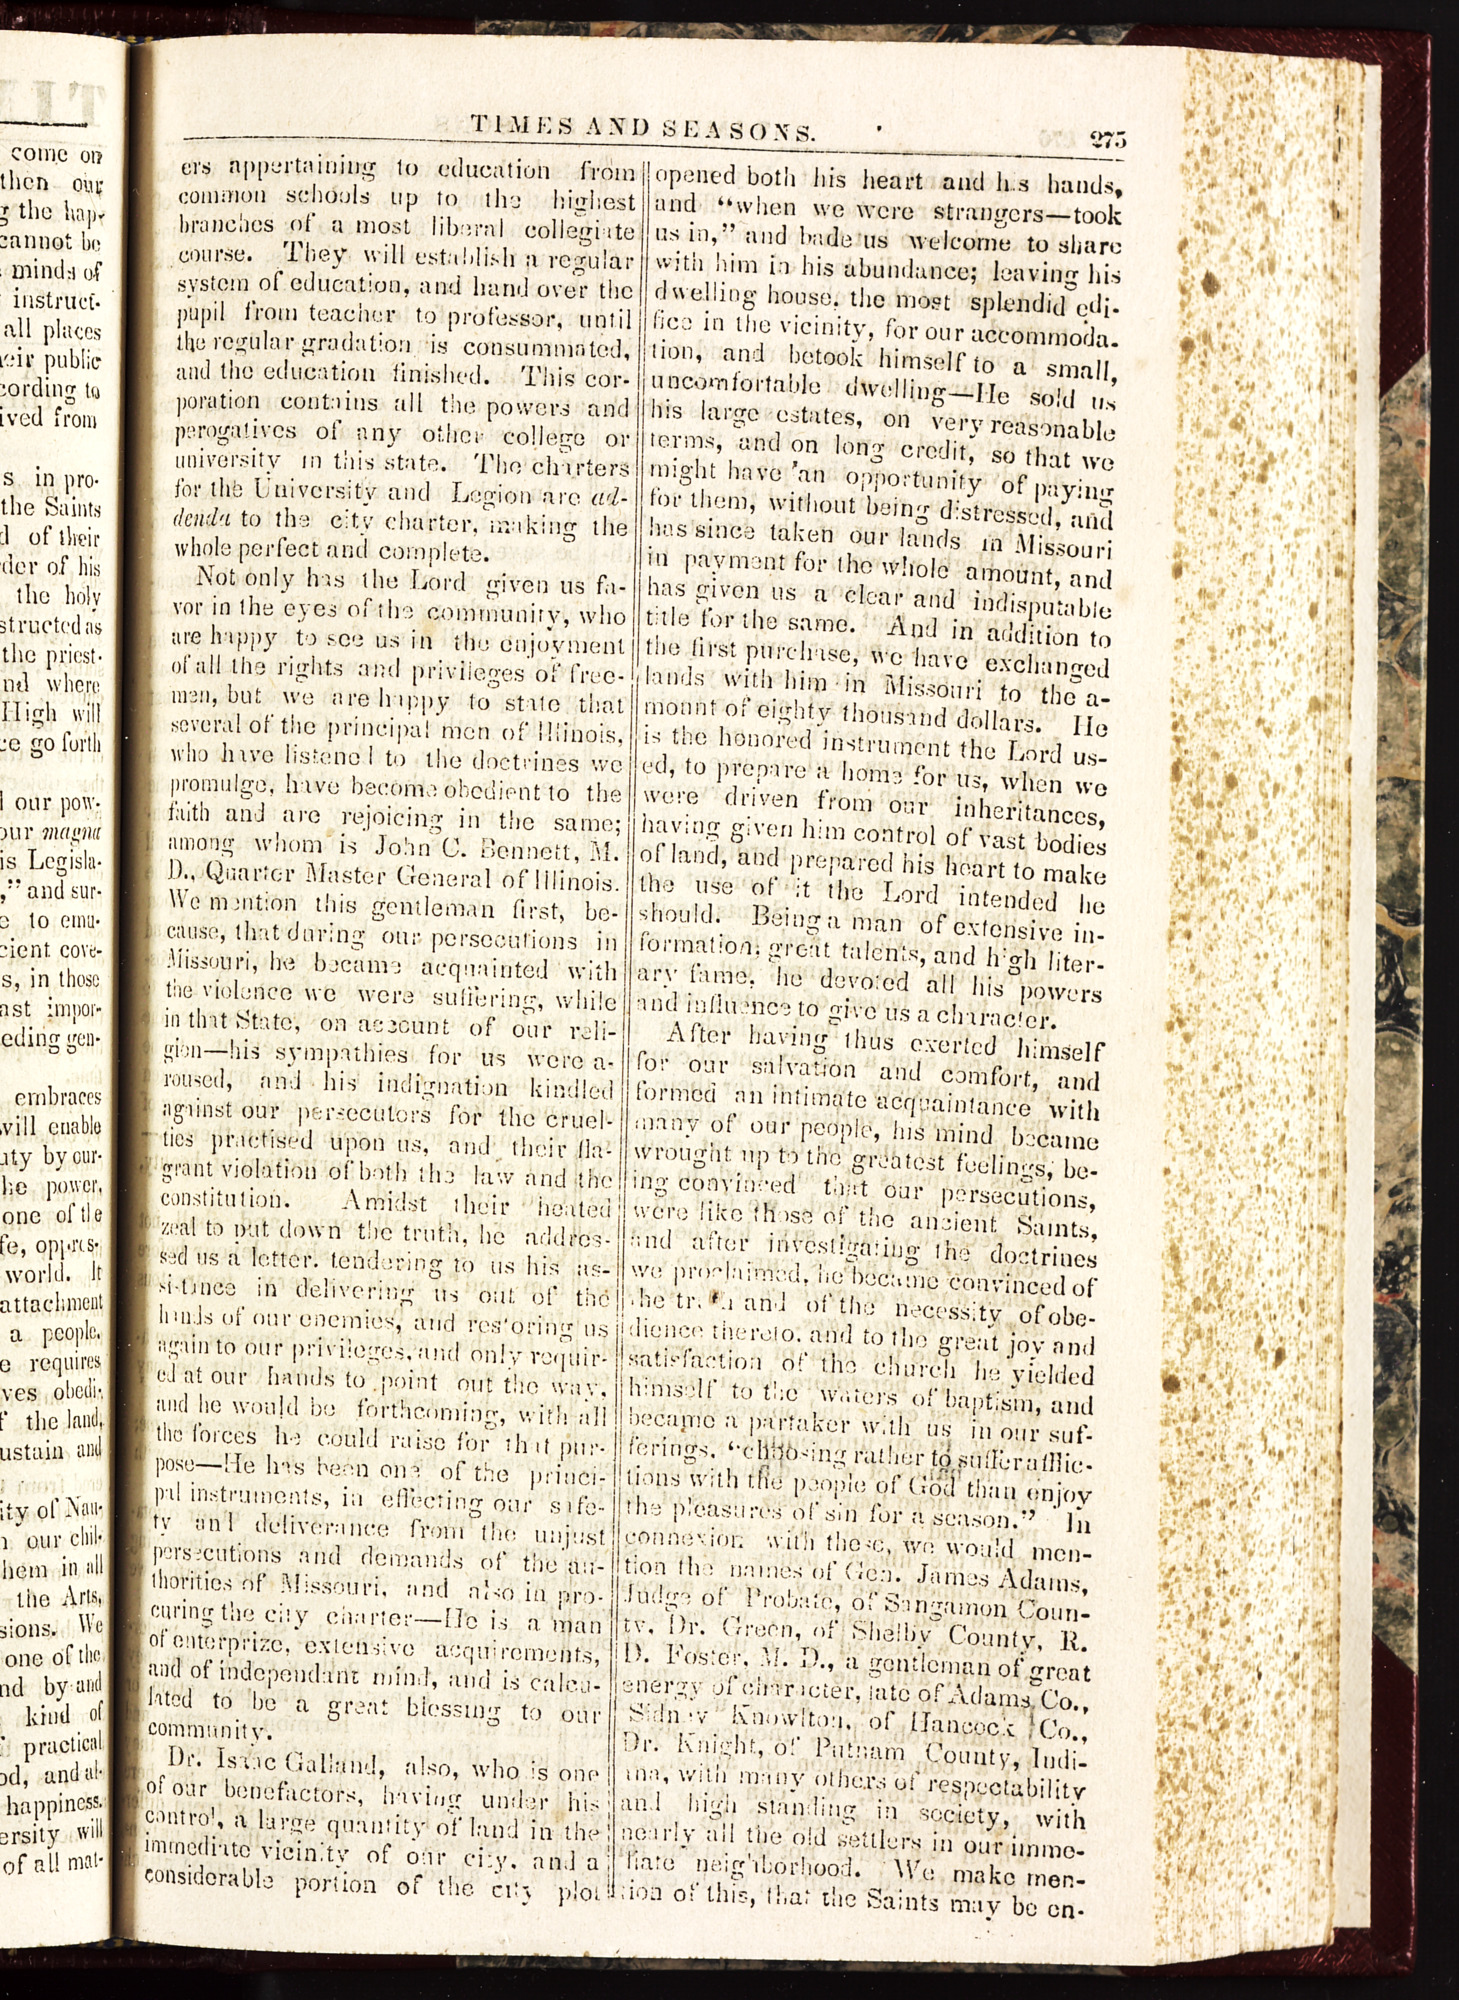 TIMES AND SEASONS.
275
come on
then our
g the hap-
cannot be
minds of
instruct-
all places
their public
cording to
ived from
s in pro-
the Saints
d of their
der of his
the holy
structed as
the priest-
nd where
High will
ce go forth
our pow-
our magna
is Legisla-
," and sur-
e to emu-
cient cove-
s, in those
ast impor-
eding gen-
embraces
will enable
uty by our-
he power,
one of the
fe, oppres-
world. It
attachment
a people,
e requires
ves obedi-
f the land,
ustain and
ity of Nau-
our chil-
hem in all
the Arts,
sions. We
one of the
nd by and
kind of
practical
od, and al-
happiness.
ersity will
of all mat-
ers appertaining to education from
common schools up to the highest
branches of a most liberal collegiate
course. They will establish a regular
system of education, and hand over the
pupil from teacher to professor, until
the regular gradation is consummated,
and the education finished. This cor-
poration contains all the powers and
perogatives of any other college or
university in this state. The charters
for the University and Legion are ad-
denda to the city charter, making the
whole perfect and complete.
Not only has the Lord given us fa-
vor in the eyes of the community, who
are happy to see us in the enjoyment
of all the rights and privileges of free-
men, but we are happy to state that
several of the principal men of Illinois,
who have listened to the doctrines we
promulge, have become obedient to the
faith and are rejoicing in the same;
among whom is John C. Bennett, M.
D., Quarter Master General of Illinois.
We mention this gentleman first, be-
cause, that during our persecutions in
Missouri, he became acquainted with
the violence we were suffering, while
in that State, on account of our reli-
gion—his sympathies for us were a-
roused, and his indignation kindled
against our persecutors for the cruel-
ties practised upon us, and their fla-
grant violation of both the law and the
constitution. Amidst their heated
zeal to put down the truth, he addres-
sed us a letter, tendering to us his as-
sistance in delivering us out of the
hands of our enemies, and restoring us
again to our privileges, and only requir-
ed at our hands to point out the way,
and he would be forthcoming, with all
the forces he could raise for that pur-
pose—He has been one of the princi-
pal instruments, in effecting our safe-
ty and deliverance from the unjust
persecutions and demands of the au-
thorities of Missouri, and also in pro-
curing the city charter—He is a man
of enterprize, extensive acquirements,
and of independant mind, and is calcu-
lated to be a great blessing to our
community.
Dr. Isaac Galland, also, who is one
of our benefactors, having under his
control, a large quantity of land in the
immediate vicinity of our city, and a
considerable portion of the city plot
opened both his heart and his hands,
and "when we were strangers—took
us in," and bade us welcome to share
with him in his abundance; leaving his
dwelling house, the most splendid edi-
fice in the vicinity, for our accommoda-
tion, and betook himself to a small,
uncomfortable dwelling—He sold us
his large estates, on very reasonable
terms, and on long credit, so that we
might have an opportunity of paying
for them, without being distressed, and
has since taken our lands in Missouri
in payment for the whole amount, and
has given us a clear and indisputable
title for the same. And in addition to
the first purchase, we have exchanged
lands with him in Missouri to the a-
mount of eighty thousand dollars. He
is the honored instrument the Lord us-
ed, to prepare a home for us, when we
were driven from our inheritances,
having given him control of vast bodies
of land, and prepared his heart to make
the use of it the Lord intended he
should. Being a man of extensive in-
formation, great talents, and high liter-
ary fame, he devoted all his powers
and influence to give us a character.
After having thus exerted himself
for our salvation and comfort, and
formed an intimate acquaintance with
many of our people, his mind became
wrought up to the greatest feelings, be-
ing convinced that our persecutions,
were like those of the ancient Saints,
and after investigating the doctrines
we proclaimed, he became convinced of
the truth and of the necessity of obe-
dience thereto, and to the great joy and
satisfaction of the church he yielded
himself to the waters of baptism, and
became a partaker with us in our suf-
ferings, "choosing rather to suffer afflic-
tions with the people of God than enjoy
the pleasures of sin for a season." In
connexion with these, we would men-
tion the names of Gen. James Adams,
Judge of Probate, of Sangamon Coun-
ty, Dr. Green, of Shelby County, R.
D. Foster, M. D., a gentleman of great
energy of character, late of Adams Co.,
Sidney Knowlton, of Hancock Co.,
Dr. Knight, of Putnam County, Indi-
ana, with many others of respectability
and high standing in society, with
nearly all the old settlers in our imme-
diate neighborhood. We make men-
tion of this, that the Saints may be en-